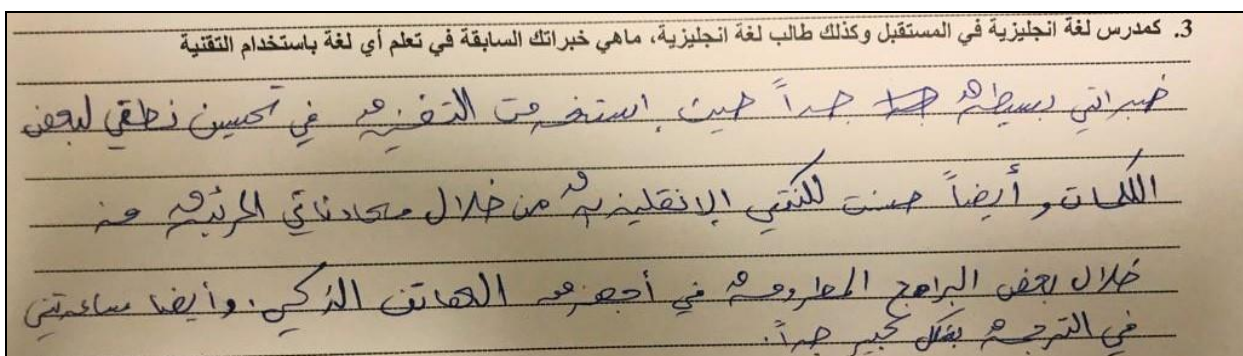 3. كمدرس لغة انجليزية في المستقبل وكذلك طالب لغة انجليزية، ماهي خبراتك السابقة في تعلم أي لغة باستخدام التقنية
خبراتي بسيطة جداً حيث استخدمت التقنية في تحسين نطقي لبعض
الكلمات و أيضاً حسنت لكنتي الإنقليزية من خلال محادثاتي المرئية من
خلال بعض البرامج المطروحة في أجهزة الهاتف الذكي. وأيضا ساعدتني
في الترجمة بشكل كبير جداً.